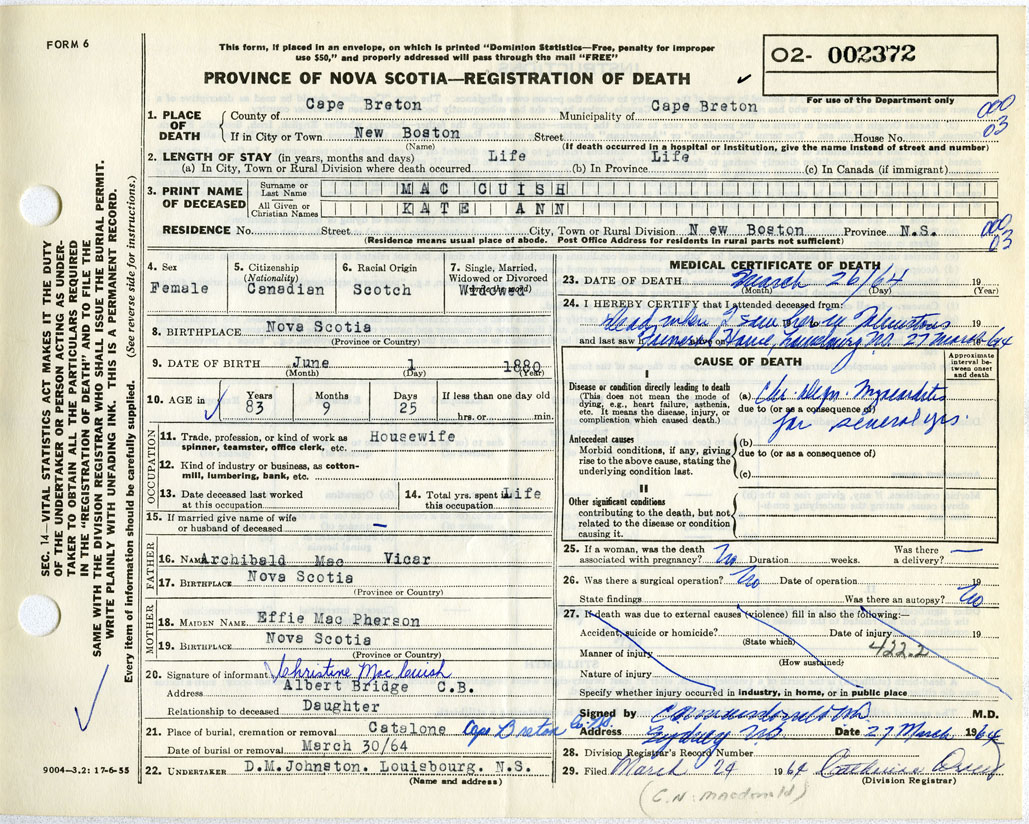 FORM 6
This form, if placed in an envelope, on which is printed "Dominion Statistics—Free, penalty for improper
use $50," and properly addressed will pass through the mail "FREE"
PROVINCE OF NOVA SCOTIA—REGISTRATION OF DEATH
O2- 002372
For use of the Department only
1. PLACE OF DEATH
County of Cape Breton Municipality of Cape Breton
000
03
If in City or Town New Boston Street House No.
(Name) (If death occurred in a hospital or institution, give the name instead of street and number)
2. LENGTH OF STAY (in years, months and days)
(a) In City, Town or Rural Division where death occurred Life (b) In Province Life (c) In Canada (if immigrant)
3. PRINT NAME OF DECEASED
Surname or Last Name MAC CUISH
All Given or Christian Names KATE ANN
RESIDENCE No. Street City, Town or Rural Division New Boston Province N.S.
000
03
(Residence means usual place of abode. Post Office Address for residents in rural parts not sufficient)
4. Sex
Female
5. Citizenship
(Nationality)
Canadian
6. Racial Origin
Scotch
7. Single, Married,
Widowed or Divorced
Widowed
8. BIRTHPLACE Nova Scotia
(Province or Country)
9. DATE OF BIRTH June 1 1880
(Month) (Day) (Year)
10. AGE in
Years Months Days If less than one day old
83 9 25 hrs. or min.
OCCUPATION
11. Trade, profession, or kind of work as
spinner, teamster, office clerk, etc. Housewife
12. Kind of industry or business, as cotton-
mill, lumbering, bank, etc.
13. Date deceased last worked
at this occupation
14. Total yrs. spent in
this occupation Life
15. If married give name of wife
or husband of deceased —
FATHER
16. NAME Archibald Mac Vicar
17. BIRTHPLACE Nova Scotia
(Province or Country)
MOTHER
18. MAIDEN NAME Effie Mac Pherson
19. BIRTHPLACE Nova Scotia
(Province or Country)
20. Signature of informant Christine MacCuish
Address Albert Bridge C.B.
Relationship to deceased Daughter
21. Place of burial, cremation or removal Catalone Cape Breton Co. N.S.
Date of burial or removal March 30/64
22. UNDERTAKER D.M. Johnston. Louisbourg. N.S.
(Name and address)
MEDICAL CERTIFICATE OF DEATH
23. DATE OF DEATH March 26/64 19
(Month) (Day) (Year)
24. I HEREBY CERTIFY that I attended deceased from:
Dead when I saw her in Johnstons 19
and last saw h alive on Funeral Home, Louisbourg N.S. 27 March 64
CAUSE OF DEATH
Approximate
interval be-
tween onset
and death
I
Disease or condition directly leading to death
(This does not mean the mode of
dying, e.g., heart failure, asthenia,
etc. It means the disease, injury, or
complication which caused death.)
(a) Chr. Degn. Myocarditis
due to (or as a consequence of)
for several yrs.
Antecedent causes
Morbid conditions, if any, giving
rise to the above cause, stating the
underlying condition last.
(b)
due to (or as a consequence of)
(c)
II
Other significant conditions
contributing to the death, but not
related to the disease or condition
causing it.
25. If a woman, was the death
associated with pregnancy? No Duration weeks. Was there
a delivery? —
26. Was there a surgical operation? No Date of operation 19
State findings Was there an autopsy? No
27. If death was due to external causes (violence) fill in also the following:—
Accident, suicide or homicide? Date of injury 19
(State which)
Manner of injury 422.2
(How sustained)
Nature of injury
Specify whether injury occurred in industry, in home, or in public place
Signed by M.D.
Address Sydney N.S. Date 27 March 1964
28. Division Registrar's Record Number
29. Filed March 29 1964
(Division Registrar)
(C.N. Macdonald)
SEC. 14—VITAL STATISTICS ACT MAKES IT THE DUTY
OF THE UNDERTAKER OR PERSON ACTING AS UNDER-
TAKER TO OBTAIN ALL THE PARTICULARS REQUIRED
IN THE "REGISTRATION OF DEATH" AND TO FILE THE
SAME WITH THE DIVISION REGISTRAR WHO SHALL ISSUE THE BURIAL PERMIT.
WRITE PLAINLY WITH UNFADING INK. THIS IS A PERMANENT RECORD.
Every item of information should be carefully supplied. (See reverse side for instructions.)
9004—3.2: 17-6-55